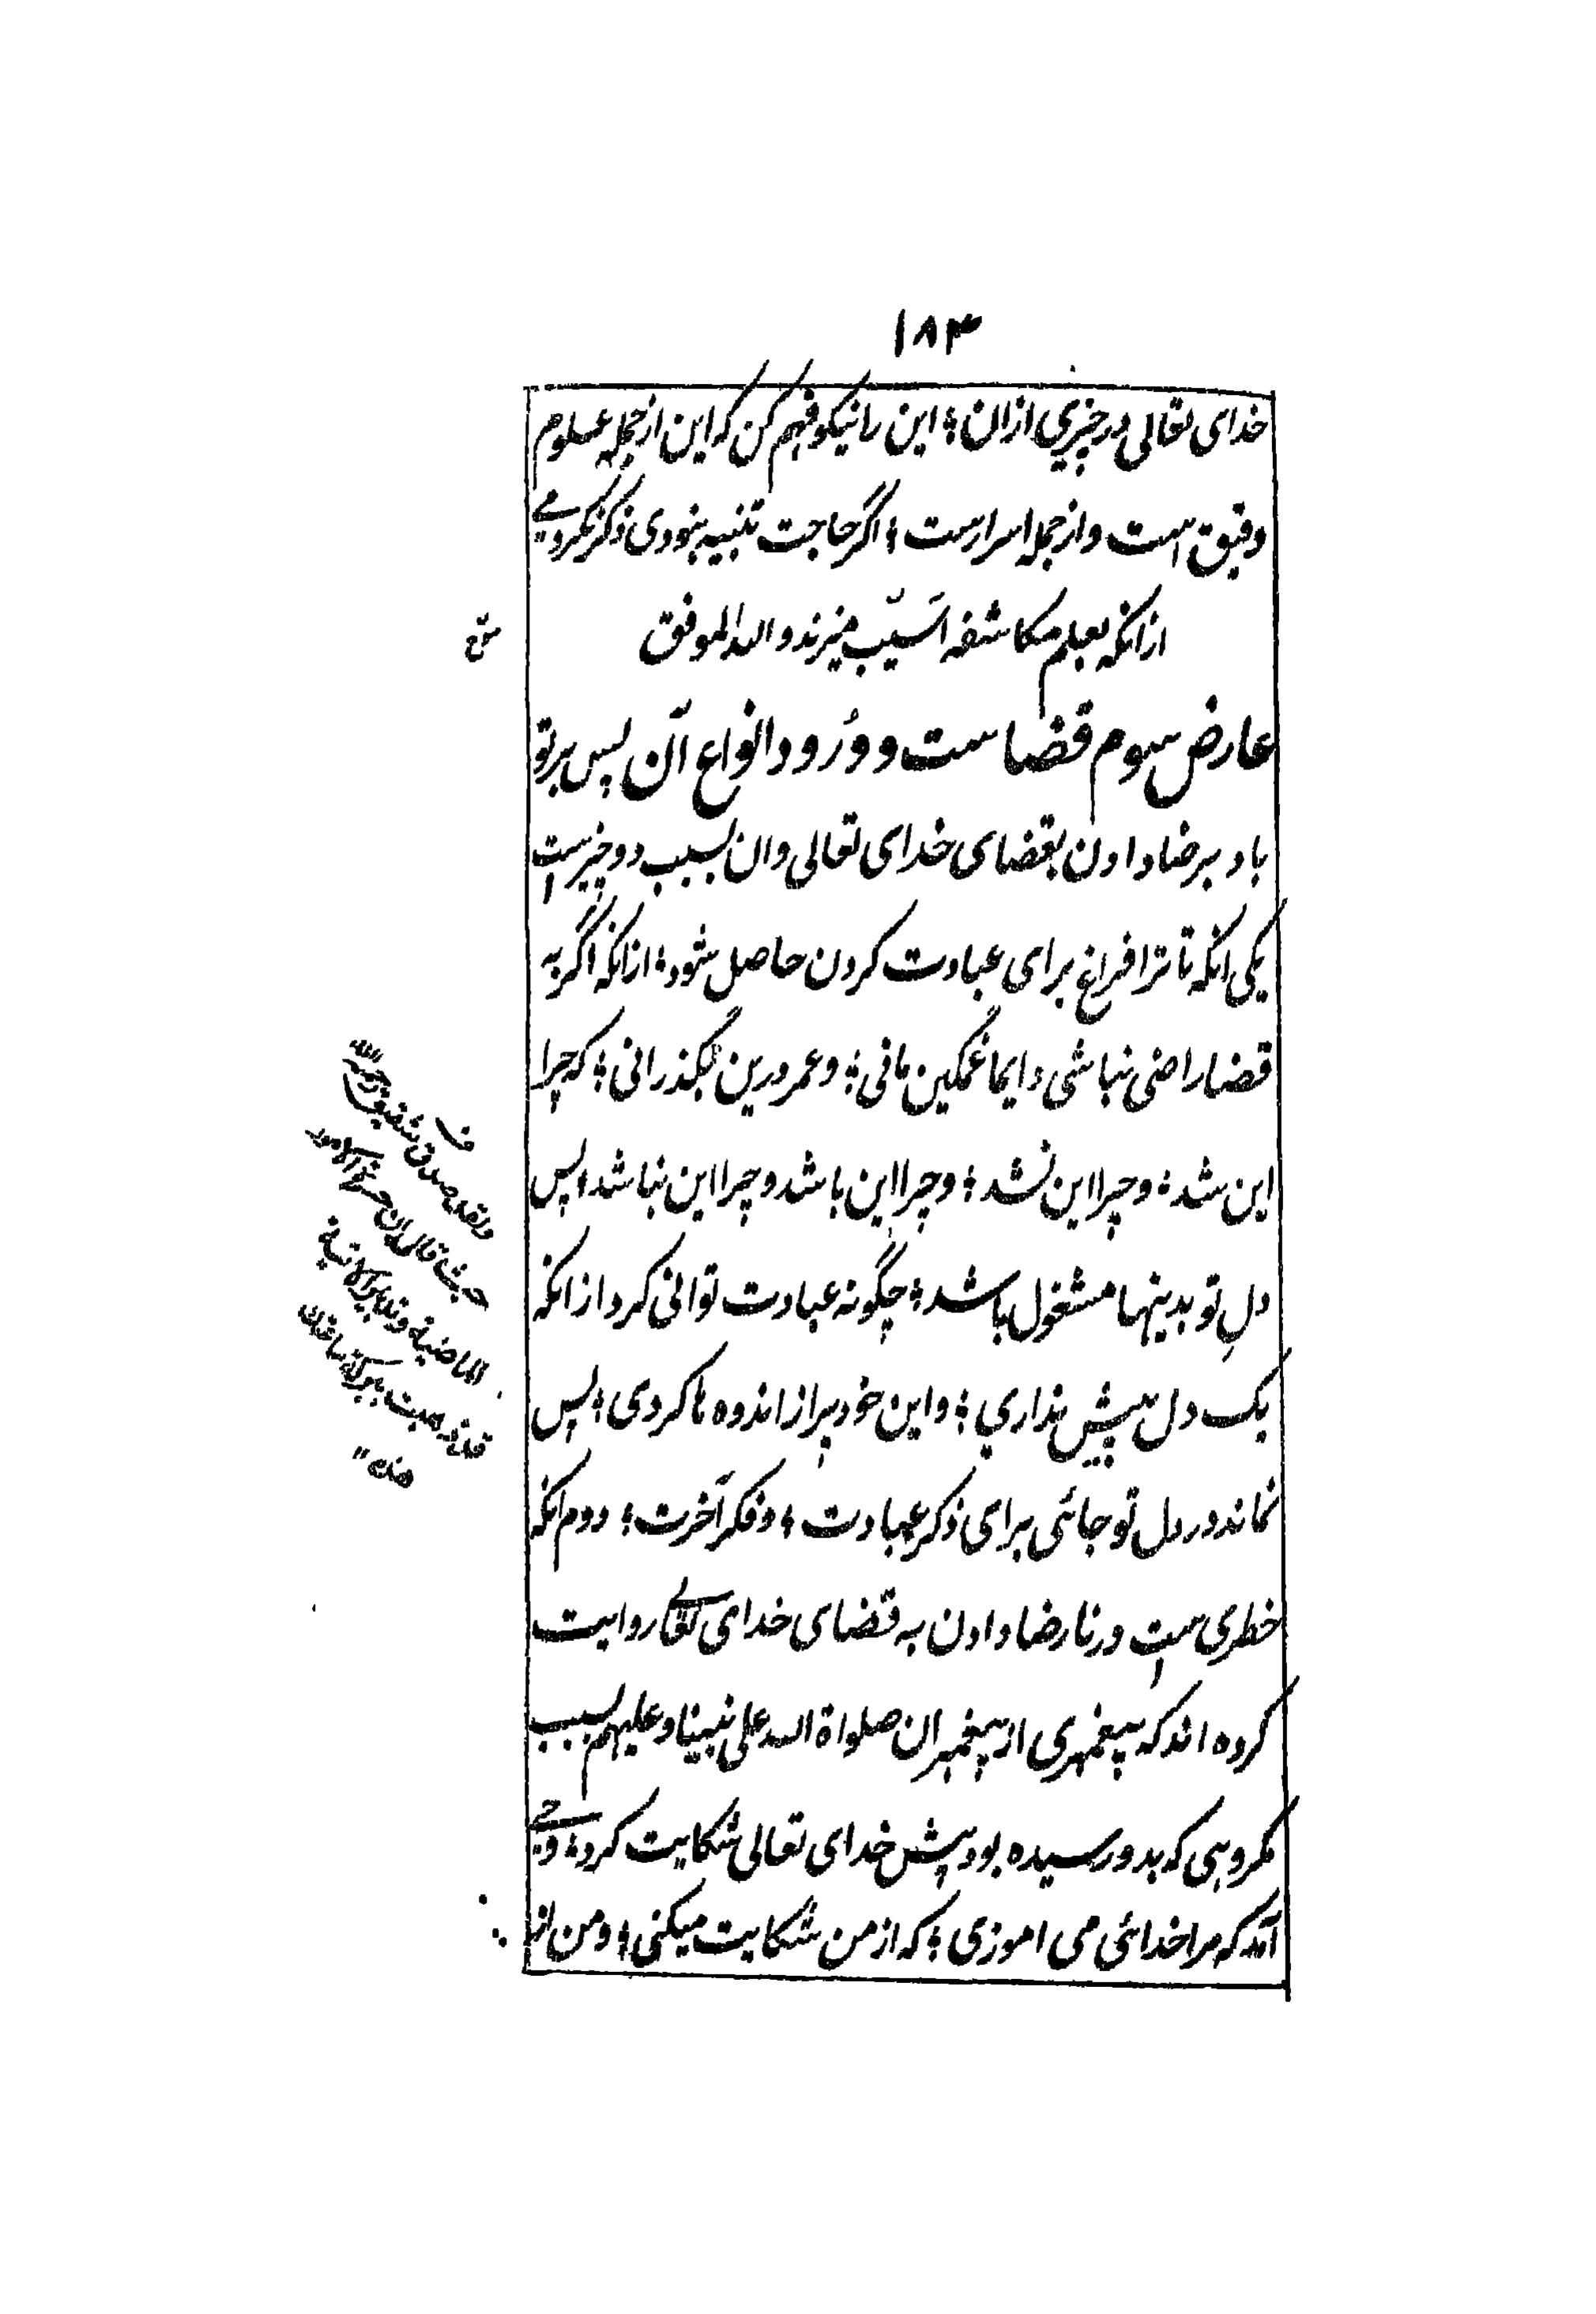 ۱۸۳
خدای تعالی در چیزی ازان ؛ این را نیکو فهم کن که این از جمله علوم
دقیق است و از جمله اسرارست ؛ اگر حاجت تنبیه نبودی ذکر نکردمی
ازانکه بعلم مکاشفه اسّیب میزند و الله الموفق
عارض سوم قضاست و وُرود انواع آن پس بر تو
باد برضا دادن بقضای خدای تعالی و ان بسبب دو چیز است
یکی انکه تا ترا فراغ برای عبادت کردن حاصل شود ؛ ازانکه اگر به
قضا راضی نباشی دایما غمگین مانی ؛ و عمر درین بگذرانی ؛ که چرا
این شد ؛ و چرا این نشد ؛ و چرا این باشد و چرا این نباشد ؛ پس
دلِ تو بدینها مشغول باشد ؛ چگونه عبادت توانی کرد ازانکه
یک دل بیش نداری ؛ و این خود پر از اندوه ها کردی ؛ پس
نماند در دل تو جائی برای ذکر عبادت ؛ و فکر آخرت ؛ دوم انکه
خطری ست در نا رضا دادن به قضای خدای تعالی روایت
کرده اند که پیغمبری از پیغمبران صلواة الله علی نبینا و علیهم بسبب
مکروهی که بدو رسیده بود پیش خدای تعالی شکایت کرد ؛ وحی
آمد که مرا خدائی می اموزی ؛ که از من شکایت میکنی ؛ و من از
ف
ولقد صدق شقیق رحمه الله
حیث قال ان حسرة الامور
الماضیة و تدبیر الاتیة
قد ذهبت ببرکة ساعتك
هذه ۱۱